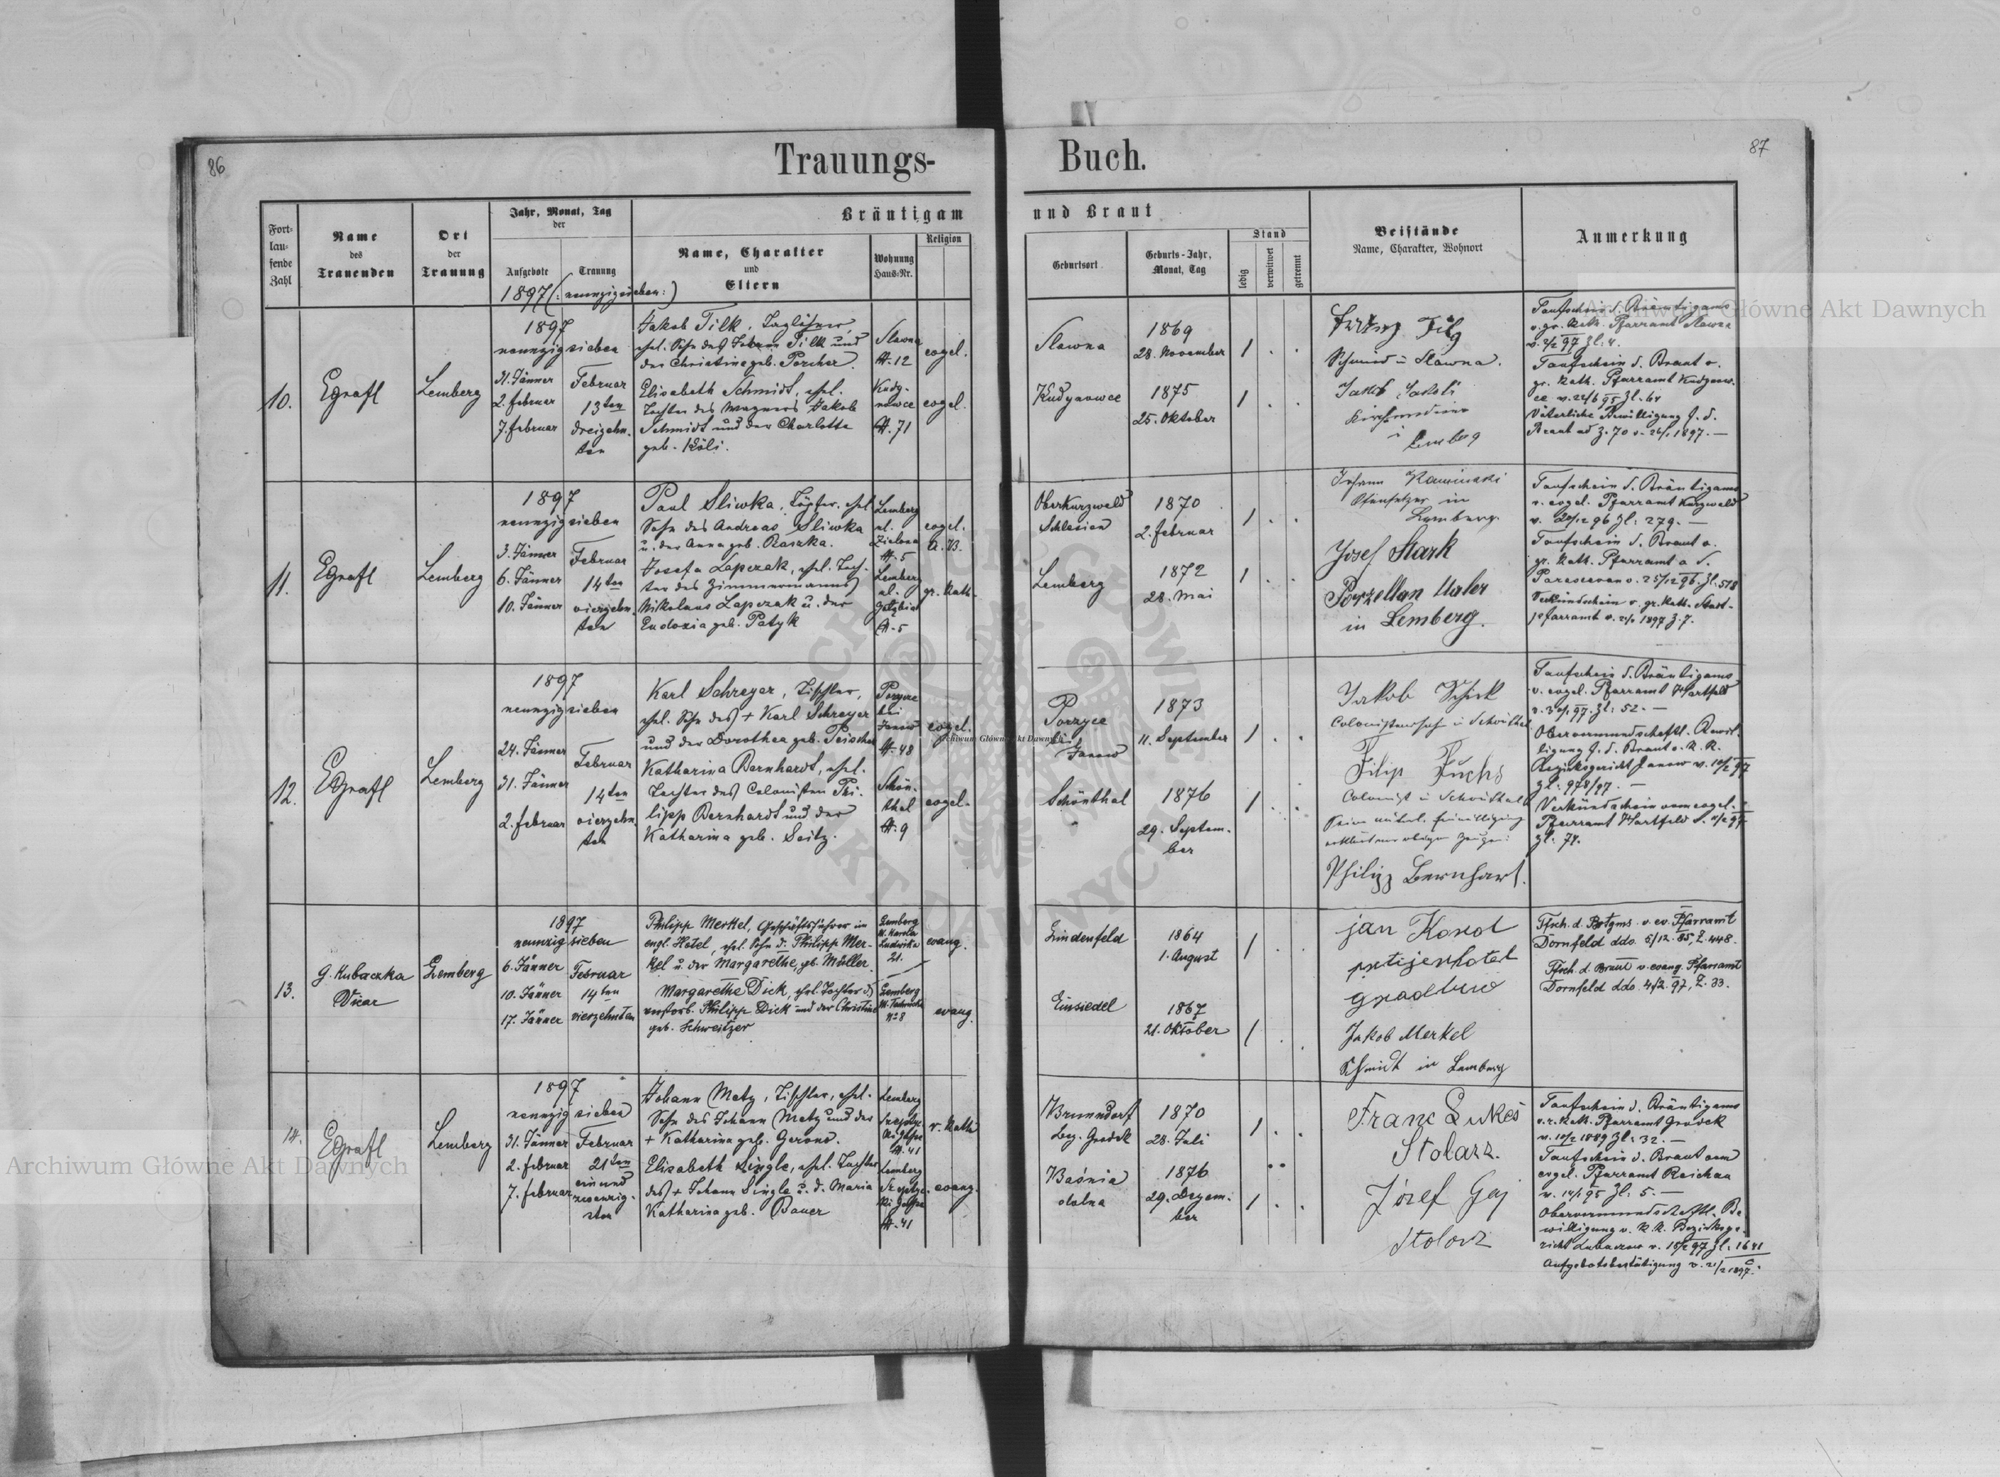 86
Trauungs-
Buch.
87
Fort-
lau-
fende
Zahl
Name
des
Trauenden
Ort
der
Trauung
Jahr, Monat, Tag
der
Aufgebote
Trauung
1897 (: neunzigsieben :)
Bräutigam
Name, Charakter
und
Eltern
Wohnung
Haus-Nr.
Religion
und Braut
Geburtsort
Geburts-Jahr,
Monat, Tag
Stand
ledig
verwitwet
getrennt
Beistände
Name, Charakter, Wohnort
Anmerkung
10.
Egrafl
Lemberg
1897
neunzigsieben
31. Jänner
2. Februar
7. Februar
Februar
13ten
dreizehn-
ten
Jakob Tilk, Taglöhner,
ehel. Sohn des Johann Tilk und
der Christine geb. Porcher.
Elisabeth Schmidt, ehel.
Tochter des Wagners Jakob
Schmidt und der Charlotte
geb. Köli.
Slawna
N. 12
Kudy-
nowce
N. 71
evgel.
evgel.
Slawna
Kudynowce
1869
28. November
1875
25. Oktober
Schmied in Slawna.
Jakob
in
Lemberg
Taufschein d. Bräutigams
v. gr. kath. Pfarramt Slawna
Taufschein d. Braut v.
gr. kath. Pfarramt Kudynow-
ce v. 22/6 95 Zl. 64
Väterliche Bewilligung f. d.
Braut ad Z. 70 v. 1897.
11.
Egrafl
Lemberg
1897
neunzigsieben
3. Jänner
6. Jänner
10. Jänner
Februar
14ten
vierzehn-
ten
Paul Sliwka, Töpfer, ehel.
Sohn des Andreas Sliwka
u. der Anna geb. Raszka.
Josefa Lapczak, ehel. Toch-
ter des Zimmermanns
Nikolaus Lapczak u. der
Eudoxia geb. Patyk
Lemberg
ul.
Zielona
N. 5
Lemberg
ul.
N. 5
evgel.
A. B.
gr. kath.
Oberkurzwald
Schlesien
Lemberg
1870
2. Februar
1872
28. Mai
Johann Kaminski
Ofensetzer in
Lemberg.
Josef Stark
Porzellan Maler
in Lemberg.
Taufschein d. Bräutigams
v. evgel. Pfarramt Kurzwald
v. 20/12 96 Zl: 279.
Taufschein d. Braut v.
gr. kath. Pfarramt a S.
Paresceven v. 25/12 96. Zl. 578
Verkündschein v. gr. kath. Stadt-
pfarramt v. 1897 Z. 7.
12.
Egrafl
Lemberg
1897
neunzigsieben
24. Jänner
31. Jänner
2. Februar
Februar
14ten
vierzehn-
ten
Karl Schreyer, Tischler,
ehel. Sohn des + Karl Schreyer
und der Dorothea geb. Peischer
Katharina Bernhardt, ehel.
Tochter des Colonisten Phi-
lipp Bernhardt und der
Katharina geb. Seitz.
Porzyce
bei
Janow
N. 48
Schön-
thal
N. 9
evgel.
evgel.
Porzyce
bei
Janow
Schönthal
1873
11. September
1876
29. Septem-
ber
Jakob Schick
Colonistensohn in Schönthal
Filip Fuchs
Colonist in Schönthal
Philipp Bernhart.
Taufschein d. Bräutigams
v. evgel. Pfarramt Hartfeld
v. 97. Zl: 52.
Obervormundschaftl. Bewil-
ligung f. d. Braut v. k. k.
Bezirksgericht Janow v. 10/2 97
Zl: 978/97.
Verkündschein vom evgel.
Pfarramt Hartfeld
Zl: 74.
13.
G. Kubaczka
Vicar
Lemberg
1897
neunzig sieben
6. Jänner
10. Jänner
17. Jänner
Februar
14ten
vierzehnten
Philipp Merkel, Geschäftsführer im
engl. Hotel, ehel. Sohn d. Philipp Mer-
kel u. der Margarethe, geb. Müller.
Margarethe Dick, ehel. Tochter d.
verstorb. Philipp Dick und der Christine
geb. Schweitzer
Lemberg
ul. Karola
Ludwika
21.
Lemberg
No 8
evang.
evang.
Lindenfeld
Einsiedel
1864
1. August
1867
21. Oktober
jan
Jakob Merkel
Schmidt in Lemberg
Tfsch. d. Brtgms. v. ev. Pfarramt
Dornfeld ddo. 5/12. 85, Z. 448.
Tfsch. d. Braut v. evang. Pfarramt
Dornfeld ddo. 4/2. 97, Z. 33.
14.
Egrafl
Lemberg
1897
neunzig sieben
31. Jänner
2. Februar
7. Februar
Februar
21ten
ein und
zwanzig-
sten
Johann Metz, Tischler, ehel.
Sohn des Johann Metz und der
+ Katharina geb. Gerono.
Elisabeth Lingle, ehel. Tochter
des + Johann Lingle u. d. Maria
Katharina geb. Bauer
Lemberg
N. 41
Lemberg
N. 41
r. kath
evang.
Brunndorf
Bez. Grodek
Basnia
dolna
1870
28. Juli
1876
29. Dezem-
ber
Franc Lukes
Stolarz.
Józef Gaj
Stolarz
Taufschein d. Bräutigams
v. r. kath. Pfarramt Grodek
v. 10/2 1889 Zl: 32.
Taufschein d. Braut vom
evgel. Pfarramt Reichau
v. 95 Zl. 5.
Obervormundschaftl. Be-
willigung v. k. k. Bezirksge-
richt Lubaczow v. 18/2 97 Zl. 1641
Aufgebotsbestätigung v. 21/2 1897.
Archiwum Główne Akt Dawnych
Archiwum Główne Akt Dawnych
Archiwum Główne Akt Dawnych